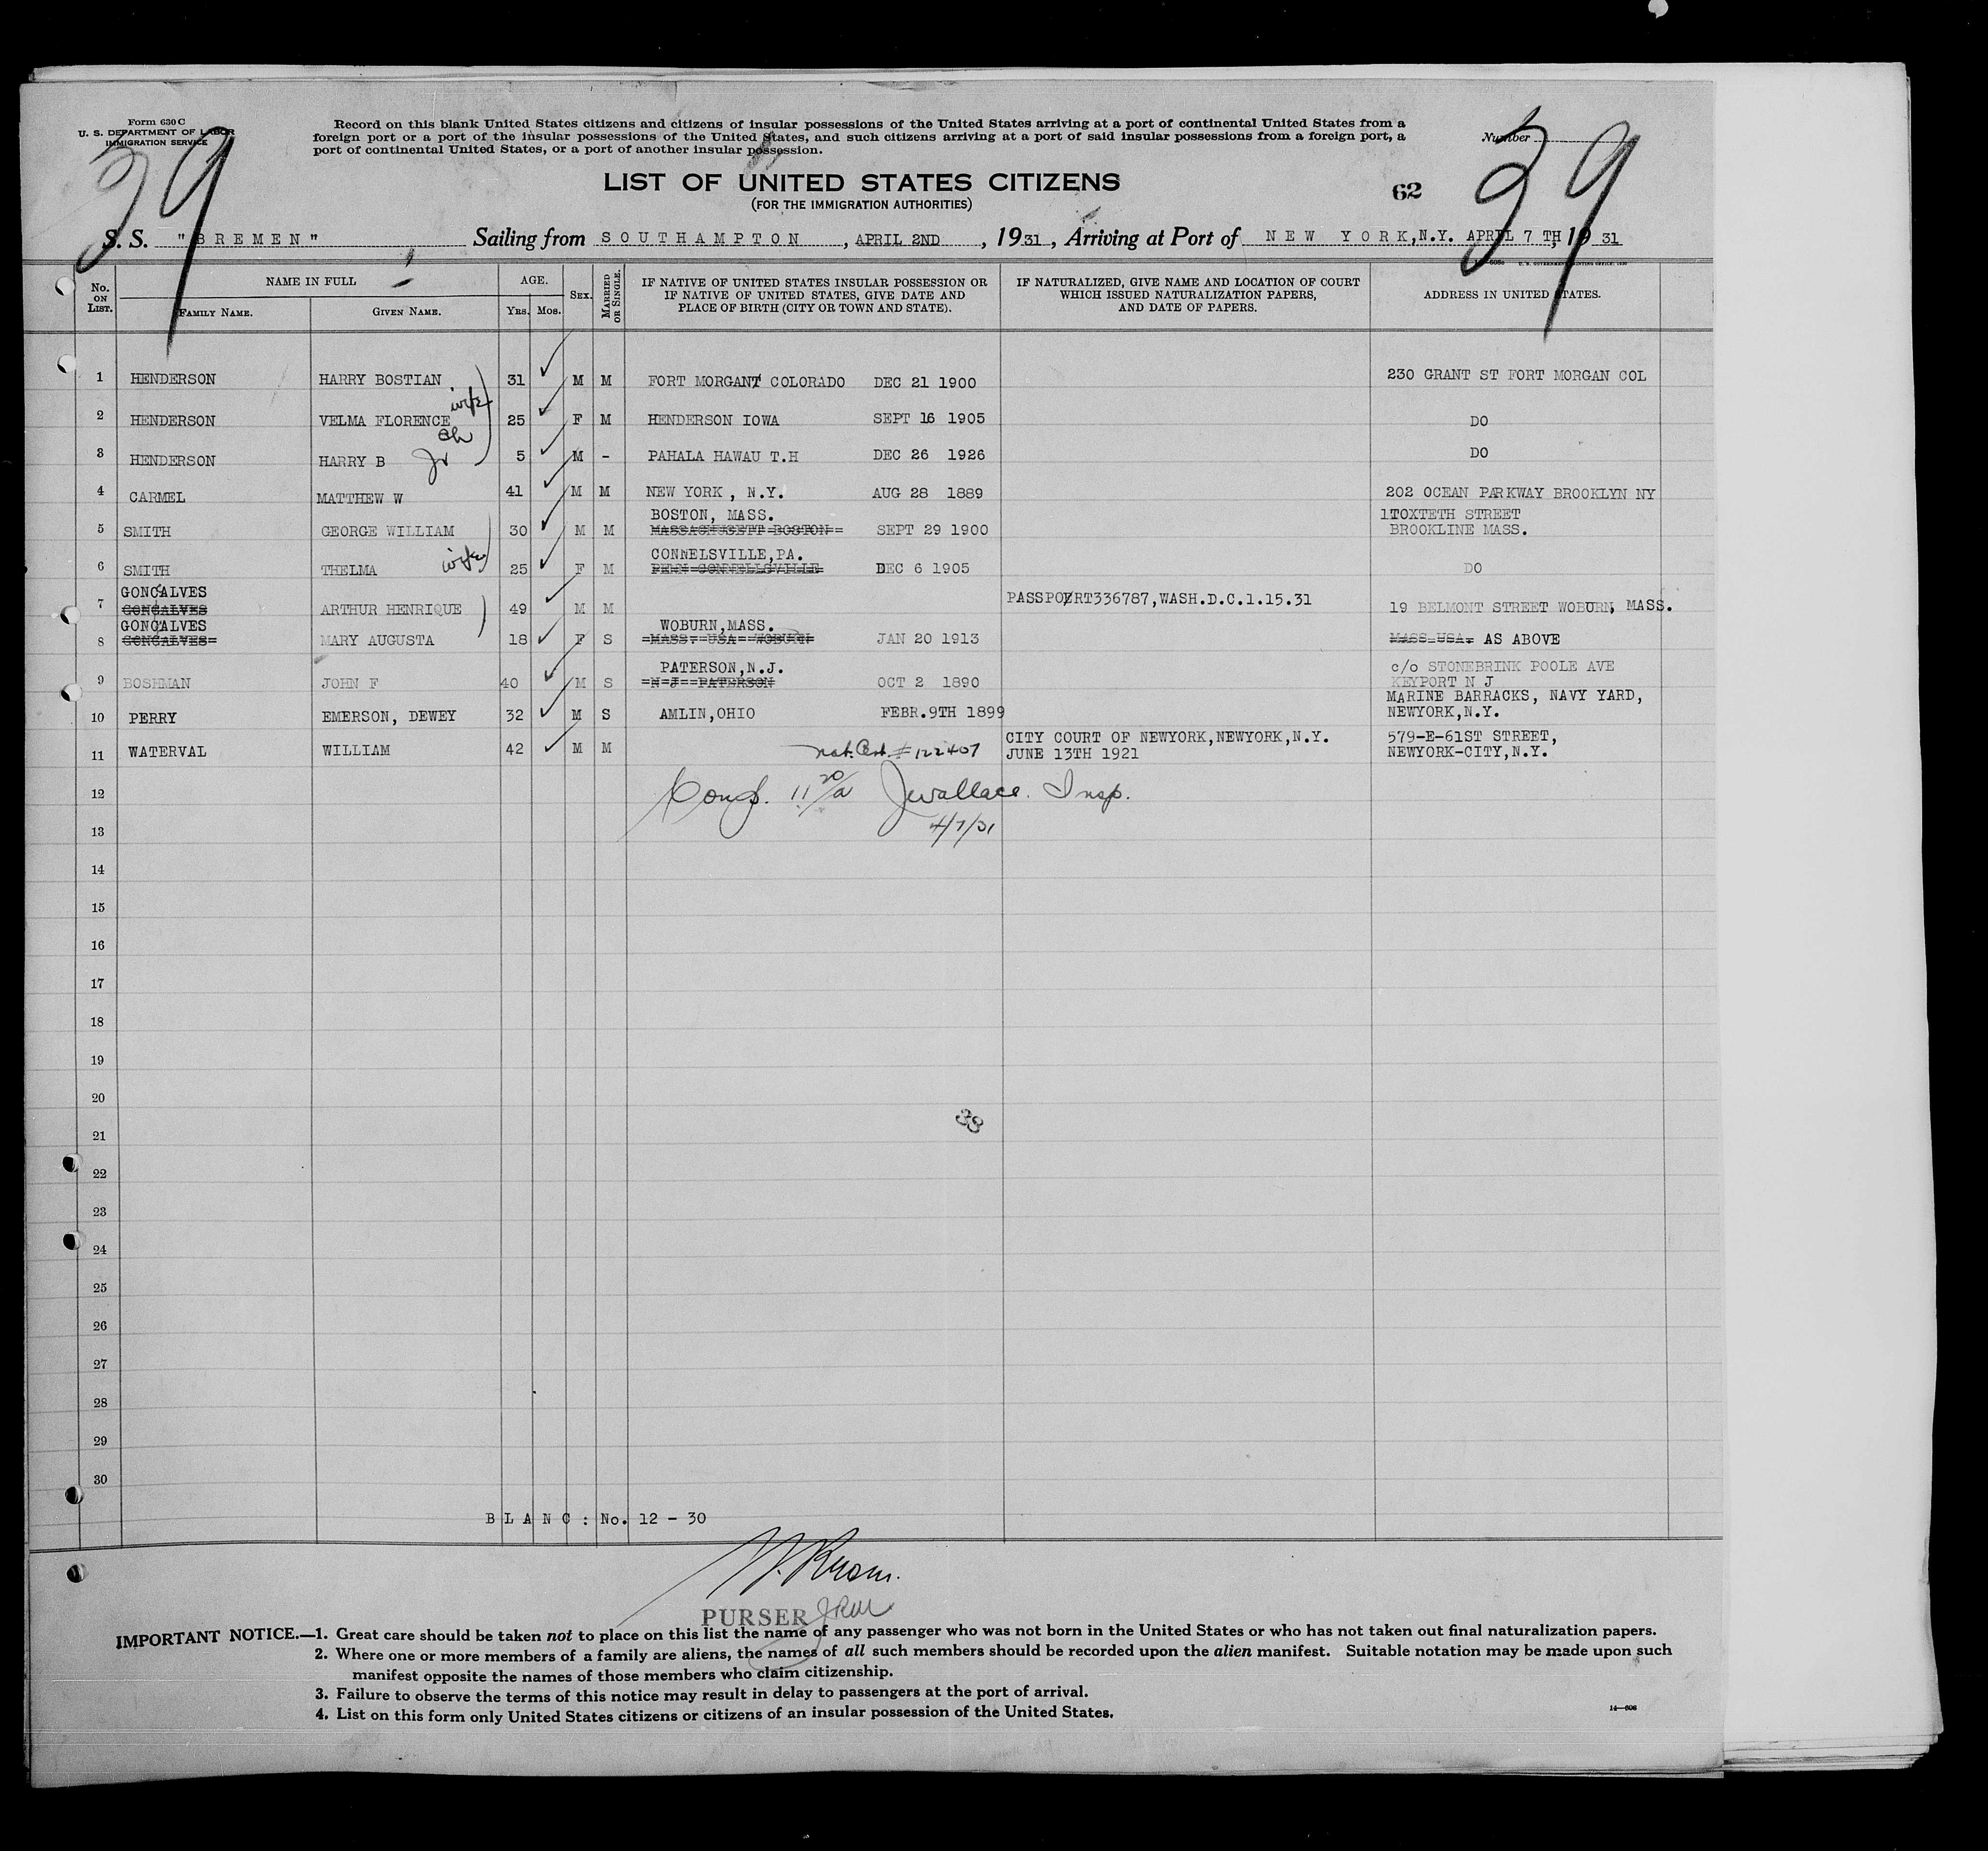 Form 630 C
U. S. DEPARTMENT OF LABOR
IMMIGRATION SERVICE
Record on this blank United States citizens and citizens of insular possessions of the United States arriving at a port of continental United States from a
foreign port or a port of the insular possessions of the United States, and such citizens arriving at a port of said insular possessions from a foreign port, a
port of continental United States, or a port of another insular possession.
Number
39
39
LIST OF UNITED STATES CITIZENS
62
(FOR THE IMMIGRATION AUTHORITIES)
S. S. "BREMEN" Sailing from SOUTHAMPTON, APRIL 2ND, 1931, Arriving at Port of NEW YORK,N.Y. APRIL 7 TH, 19 31
No. ON LIST. NAME IN FULL FAMILY NAME. GIVEN NAME. AGE. YRS. MOS. SEX. MARRIED OR SINGLE. IF NATIVE OF UNITED STATES INSULAR POSSESSION OR IF NATIVE OF UNITED STATES, GIVE DATE AND PLACE OF BIRTH (CITY OR TOWN AND STATE). IF NATURALIZED, GIVE NAME AND LOCATION OF COURT WHICH ISSUED NATURALIZATION PAPERS, AND DATE OF PAPERS. ADDRESS IN UNITED STATES.
1 HENDERSON HARRY BOSTIAN 31 ✓ M M FORT MORGAN COLORADO DEC 21 1900 230 GRANT ST FORT MORGAN COL
2 HENDERSON VELMA FLORENCE wife 25 ✓ F M HENDERSON IOWA SEPT 16 1905 DO
3 HENDERSON HARRY B Jr ch 5 ✓ M - PAHALA HAWAU T.H DEC 26 1926 DO
4 CARMEL MATTHEW W 41 ✓ M M NEW YORK , N.Y. AUG 28 1889 202 OCEAN PARKWAY BROOKLYN NY
BOSTON, MASS. 1TOXTETH STREET
5 SMITH GEORGE WILLIAM 30 ✓ M M MASSACHUSETT BOSTON SEPT 29 1900 BROOKLINE MASS.
CONNELSVILLE,PA.
6 SMITH THELMA wife 25 ✓ F M PENN CONNELLSVILLE DEC 6 1905 DO
GONCALVES
7 GONCALVES ARTHUR HENRIQUE 49 ✓ M M PASSPORT336787,WASH.D.C.1.15.31 19 BELMONT STREET WOBURN, MASS.
GONCALVES WOBURN,MASS.
8 GONCALVES MARY AUGUSTA 18 ✓ F S MASS. USA WOBURN JAN 20 1913 MASS USA. AS ABOVE
PATERSON,N.J. c/o STONEBRINK POOLE AVE
9 BOSHMAN JOHN F 40 ✓ M S N J PATERSON OCT 2 1890 KEYPORT N J
MARINE BARRACKS, NAVY YARD,
10 PERRY EMERSON, DEWEY 32 ✓ M S AMLIN,OHIO FEBR.9TH 1899 NEWYORK,N.Y.
CITY COURT OF NEWYORK,NEWYORK,N.Y. 579-E-61ST STREET,
11 WATERVAL WILLIAM 42 ✓ M M Nat. Cert. # 122407 JUNE 13TH 1921 NEWYORK-CITY,N.Y.
12 11 20/a J Wallace. Insp.
13 4/7/31
14
15
16
17
18
19
20
21
22
23
24
25
26
27
28
29
30
BLANC: No. 12 - 30
PURSER
IMPORTANT NOTICE.—1. Great care should be taken not to place on this list the name of any passenger who was not born in the United States or who has not taken out final naturalization papers.
2. Where one or more members of a family are aliens, the names of all such members should be recorded upon the alien manifest. Suitable notation may be made upon such
manifest opposite the names of those members who claim citizenship.
3. Failure to observe the terms of this notice may result in delay to passengers at the port of arrival.
4. List on this form only United States citizens or citizens of an insular possession of the United States.